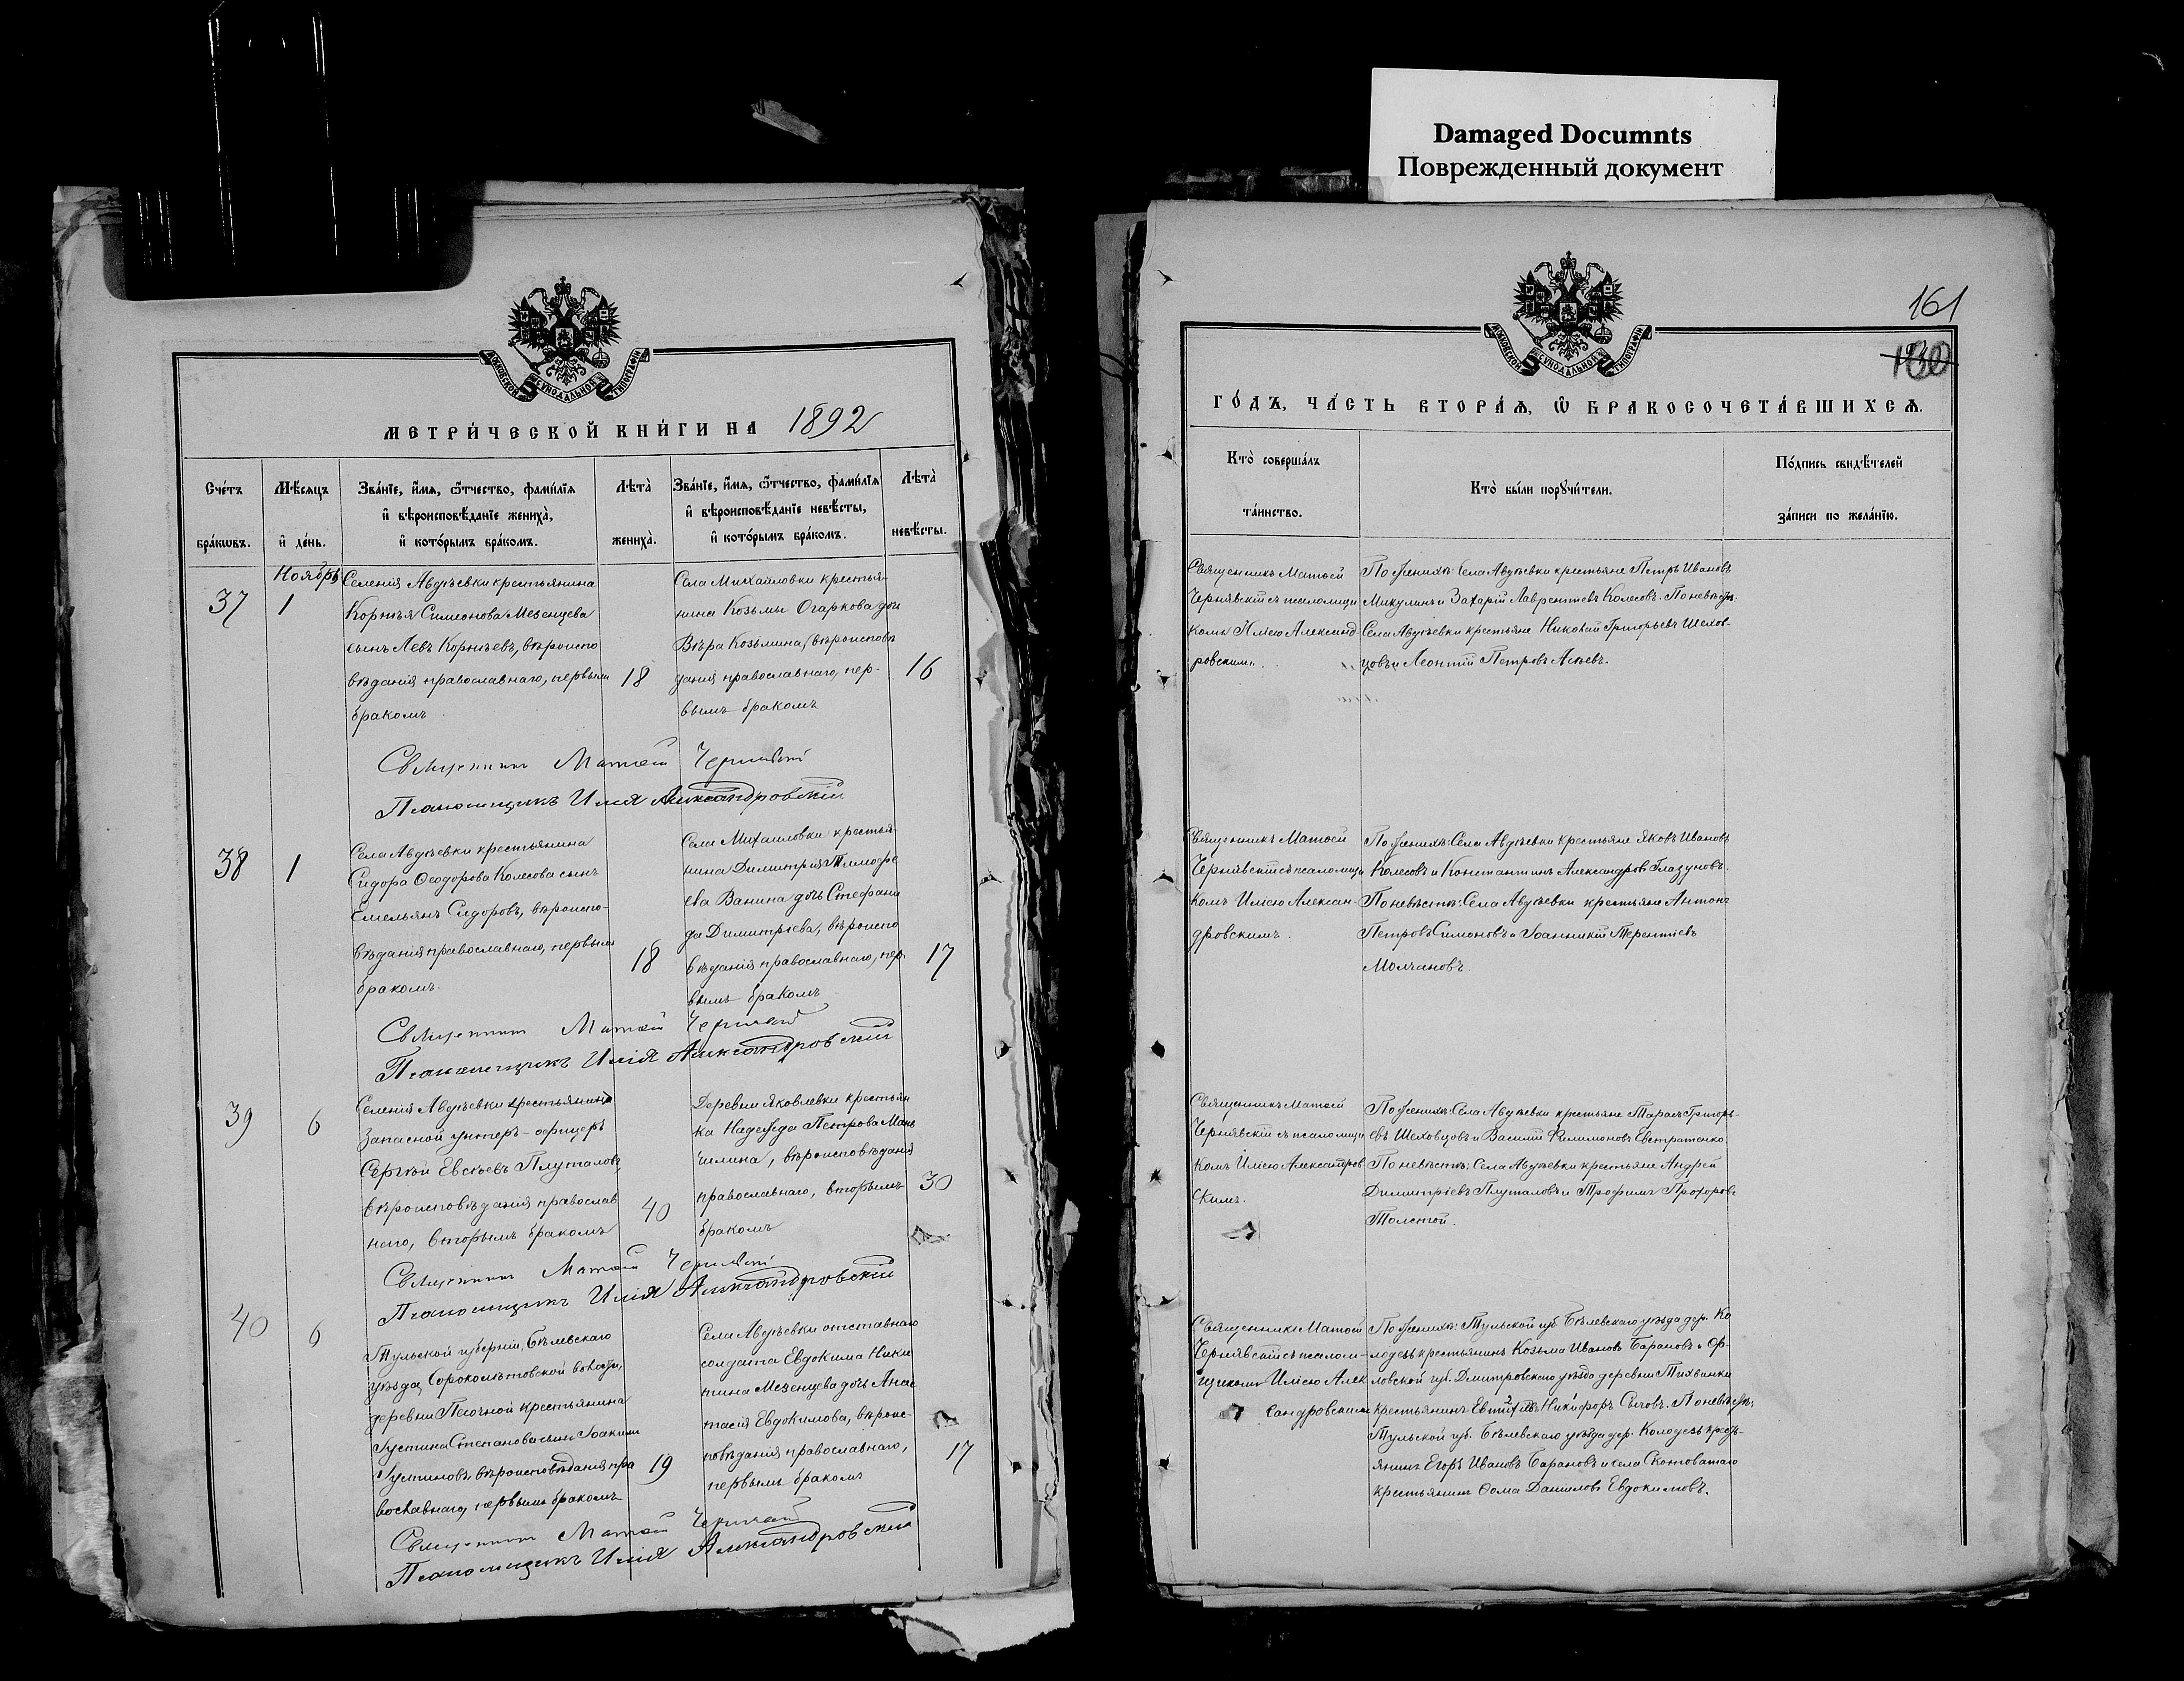 Damaged Documnts
Поврежденный документ
МЕТРИ́ЧЕСКОЙ КНИ́ГИ НА 1892
Сче́тъ бра́кωвъ.
Мѣ́сяцъ и҆ де́нь.
Зва́нїе, и҆́мя, ѻ҆́тчество, фами́лїя
и҆ вѣроисповѣ́данїе жениха̀,
и҆ кото́рымъ бра́комъ.
Лѣта̀ жениха̀.
Зва́нїе, и҆́мя, ѻ҆́тчество, фами́лїя
и҆ вѣроисповѣ́данїе невѣ́сты,
и҆ кото́рымъ бра́комъ.
Лѣта̀ невѣ́сты.
Ноябрь
37
1
Селенія Авдѣевки крестьянина
Корнѣя Симеонова Мезенцева
сынъ Левъ Корнѣевъ, вѣроиспо
вѣданія православнаго, первымъ
бракомъ
18
Села Михайловки крестья-
нина Козьмы Огаркова дочь
Вѣра Козьмина, вѣроисповѣ
данія православнаго, пер-
вымъ бракомъ
16
Священникъ Матѳей Чернявскій
Псаломщикъ Илія Александровскій
38
1
Села Авдѣевки крестьянина
Сидора Ѳеодорова Колесова сынъ
Емельянъ Сидоровъ, вѣроиспо-
вѣданія православнаго, первымъ
бракомъ.
18
Села Михайловки крестья-
нина Димитрія Тимофе
ева Ванина дочь Стефани
да Димитріева, вѣроиспо
вѣданія православнаго, пер-
вымъ бракомъ
17
Священникъ Матѳей Чернявскій
Псаломщикъ Илія Александровскій
39
6
Селенія Авдѣевки крестьянинъ
Запасной унтеръ-офицеръ
Сергѣй Евсѣевъ Плуталовъ,
вѣроисповѣданія православ
наго, вторымъ бракомъ
40
Деревни Яковлевки крестьян
ка Надежда Петрова Мань
шина, вѣроисповѣданія
православнаго, вторымъ
бракомъ
30
Священникъ Матѳей Чернявскій
Псаломщикъ Илія Александровскій
40
6
Тульской губерніи, Бѣлевскаго
уѣзда, Сороколѣтовской волости,
деревни Песочной крестьянина
Іустина Степанова сынъ Іоакимъ
Іустиновъ, вѣроисповѣданія пра
вославнаго, первымъ бракомъ
19
Села Авдѣевки отставнаго
солдата Евдокима Ники
тина Мезенцева дочь Анас
тасія Евдокимова, вѣроис-
повѣданія православнаго,
первымъ бракомъ
17
Священникъ Матѳей Чернявскій
Псаломщикъ Илія Александровскій
161
ГО́ДЪ, ЧА́СТЬ ВТОРА́Я, Ѡ҆ БРАКОСОЧЕТА́ВШИХСЯ.
Кто̀ соверша́лъ
та́инство.
Кто̀ бы́ли порꙋчи́тели.
По́дпись свидѣ́телей
за́писи по жела́нїю.
Священникъ Матѳей
Чернявскій съ псаломщи
комъ Иліею Александ
ровскимъ.
По женихѣ: Села Авдѣевки крестьяне Петръ Ивановъ
Микулинъ и Захарій Лаврентіевъ Колесовъ. По невѣстѣ:
Села Авдѣевки крестьяне Николай Григорьевъ Шехов-
цовъ и Леонтій Петровъ Асѣевъ.
Священникъ Матѳей
Чернявскій съ псаломщи
комъ Иліею Алексан-
дровскимъ.
По женихѣ: Села Авдѣевки крестьяне Яковъ Ивановъ
Колесовъ и Константинъ Александровъ Глазуновъ.
По невѣстѣ: Села Авдѣевки крестьяне Антонъ
Петровъ Симоновъ и Іоанникій Терентіевъ
Молчановъ.
Священникъ Матѳей
Чернявскій съ псаломщи
комъ Иліею Александров
скимъ.
По женихѣ: Села Авдѣевки крестьяне Тарасъ Григорь-
евъ Шеховцовъ и Василій Филимоновъ Евстратенко
По невѣстѣ: Села Авдѣевки крестьяне Андрей
Димитріевъ Плуталовъ и Трофимъ Прохоровъ
Толстой.
Священникъ Матѳей
Чернявскій съ псалом-
щикомъ Иліею Алек
сандровскимъ
По женихѣ: Тульской губ. Бѣлевскаго уѣзда дер. Ко
лодезь крестьянинъ Козьма Ивановъ Барановъ и Ор-
ловской губ. Дмитровскаго уѣзда деревни Тихвинки
крестьянинъ Никифоръ Сычовъ. По невѣстѣ:
Тульской губ. Бѣлевскаго уѣзда дер. Колодезь кресть-
янинъ Егоръ Ивановъ Барановъ и села Скотоватаго
крестьянинъ Ѳома Даниловъ Евдокимовъ.